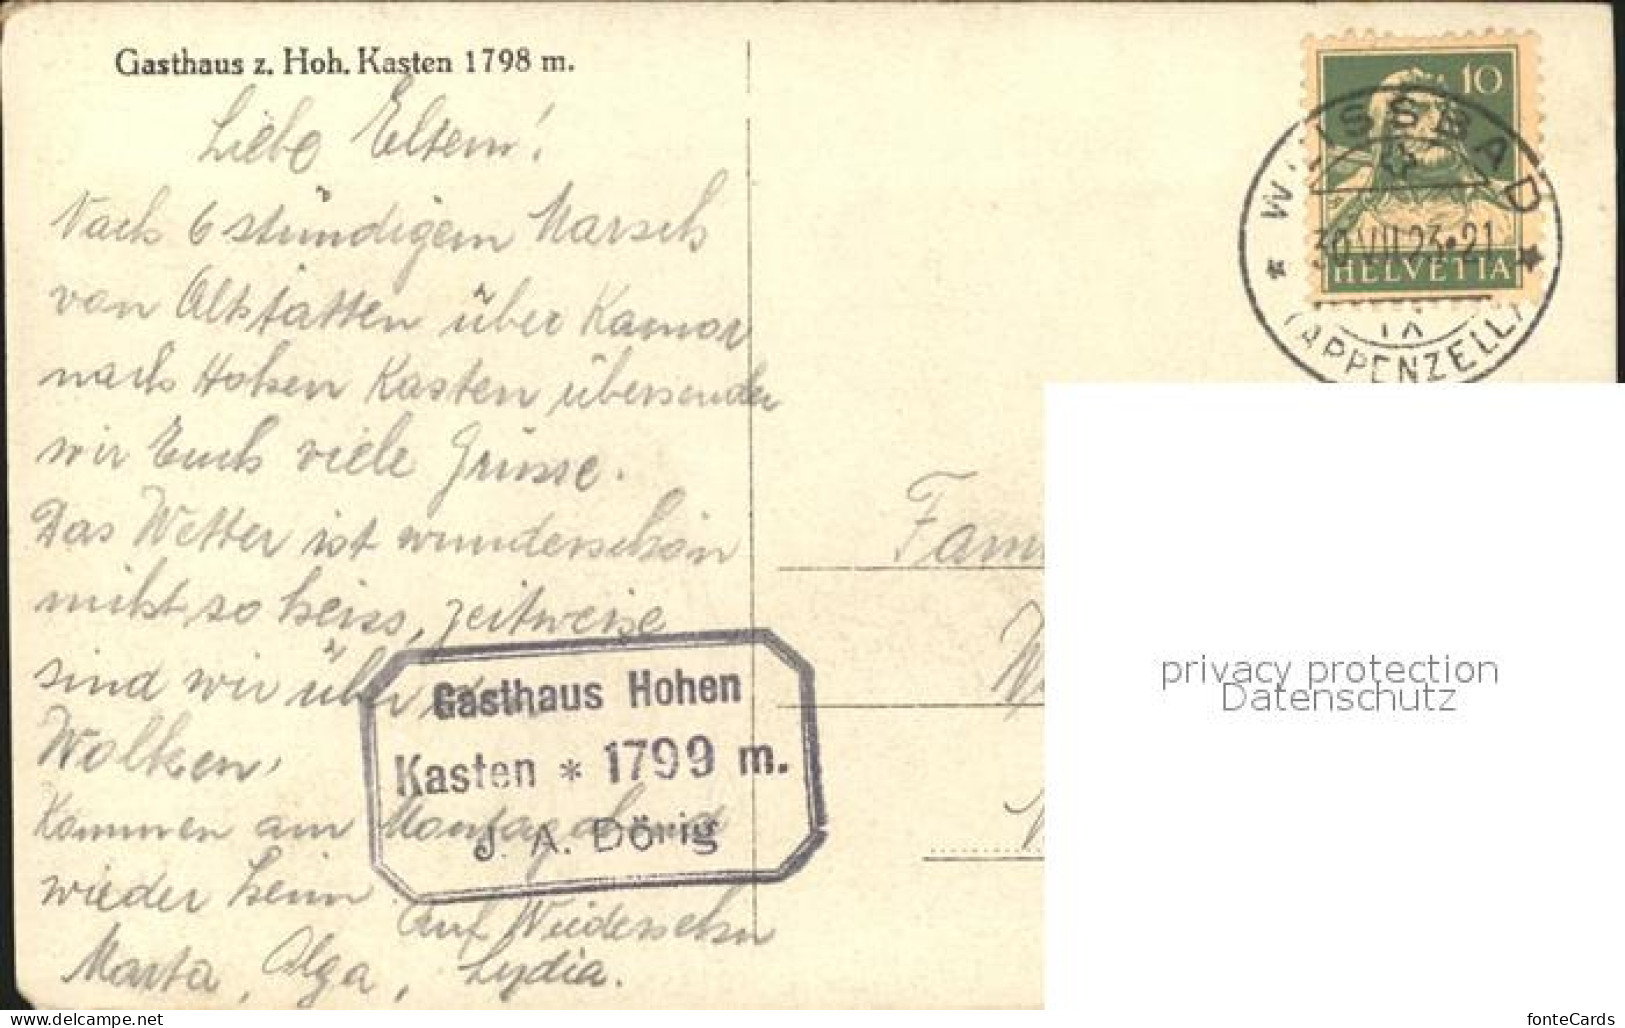 Gasthaus z. Hoh. Kasten 1798 m.
Liebe Eltern!
Nach 6 stündigem Marsch
von Altstätten über Kamor
nach Hohen Kasten übersenden
wir Euch viele Grüsse.
Das Wetter ist wunderschön
nicht so heiss, zeitweise
sind wir über
Wolken,
Kommen am Montagabend
wieder heim.
Auf Wiedersehn
Marta, Olga, Lydia.
Gasthaus Hohen
Kasten * 1799 m.
J. A. Dörig
10
HELVETIA
WEISSBAD
30.VII.23·21
IX
(APPENZELL)
Fam
privacy protection
Datenschutz
www.delcampe.net
fonteCards